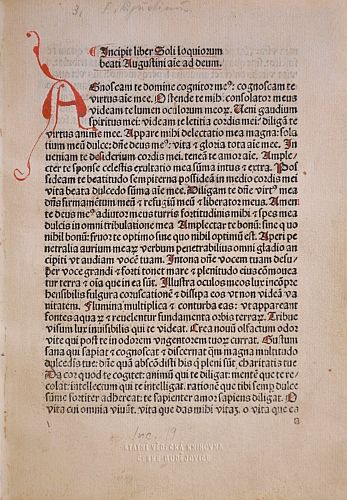 Incipit liber Soli loquiorum
beati Augustini aīe ad deum.
AGnoscam te domine cognitor meꝰ: cognoscam te
virtus aīe mee. Ostende te mihi cōsolator meus
videam te lumen oculorum meoꝝ. Veni gaudium
spiritus mei: videam te letitia cordis mei: diligā te
virtus anime mee. Appare mihi delectatio mea magna: sola
tium meū dulce: dn̄e deus meꝰ: vita ⁊ gloria tota aīe mee. In
ueniam te desiderium cordis mei. teneā te amor aīe. Amplec
ter te sponse celestis exultatio mea sūma intus ⁊ extra. Pos
sideam te beatitudo sempiterna possideā in medio cordis mei
vita beata dulcedo sūma aīe mee. Diligam te dn̄e virtꝰ mea
dn̄s firmamētum meū ⁊ refugiū meū ⁊ liberator meus. Amem
te deus meꝰ adiutor meus turris fortitudinis mihi ⁊ spes mea
dulcis in omni tribulatione mea Amplectar te bonū: sine quo
nihil bonū: fruar te optimo sine quo nihil optimū est. Aperi pe
netralia aurium mearꝝ verbum penetrabilius omni gladio an
cipiti vt audiam vocē tuam. Intona dn̄e vocem tuam desu/
per voce grandi ⁊ forti tonet mare ⁊ plenitudo eius cōmouea
tur terra ⁊ oīa que in ea sūt. Illustra oculos meos lux incōpre
hensibilis fulgura coruscationē ⁊ dissipa eos vt non videā va
nitatem. Flumina multiplica ⁊ conturba eas: vt appareant
fontes aquaꝝ ⁊ reuelentur fundamenta orbis terraꝝ. Tribue
visum lux inuisibilis qui te videat. Crea nouū olfactum odor
vite qui post te in odorem vngentorem tuoꝝ currat. Gustum
sana qui sapiat ⁊ cognoscat ⁊ discernat q̄m magna multitudo
dulcedīs tue: dn̄e quā abscōdisti his q̄ pleni sūt charitatis tue
Da cor quod te cogitet: animū qui te diligat: mentē que te re
colat: intellectum qui te intelligat. rationē que tibi semꝑ dulce
sūme fortiter adhereat: te sapienter amor sapiens diligat. O
vita cui omnia viuūt. vita que das mihi vitā. o vita que ea
Inc. 19
STÁTNÍ VĚDECKÁ KNIHOVNA
ČESKÉ BUDĚJOVICE